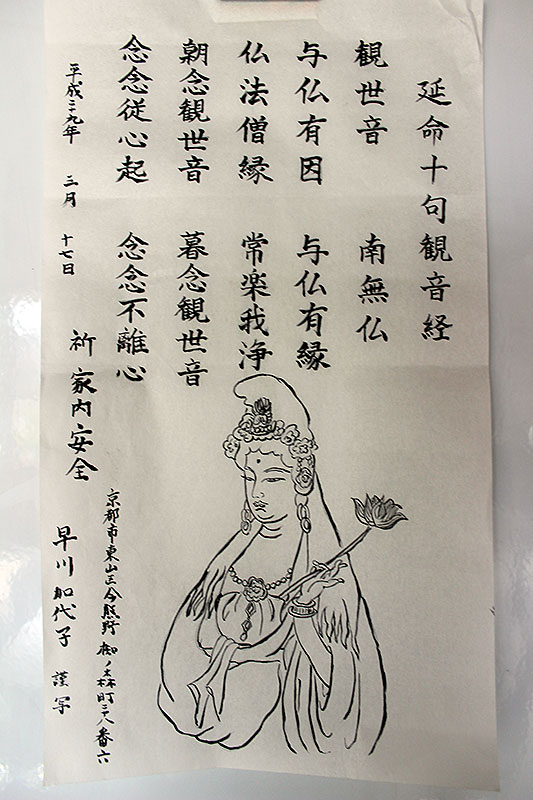 延命十句観音経
観世音 南無仏
与仏有因 与仏有縁
仏法僧縁 常楽我浄
朝念観世音 暮念観世音
念念従心起 念念不離心
平成二十九年 三月 十七日
祈 家内安全
京都市東山区今熊野 椥ノ森町三十八番六
早川加代子 謹写